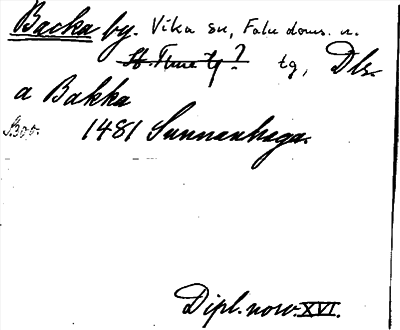 Backa by. Vika sn, Falu doms. n.
St. Tuna tg? tg, Dlr.
a Bakka
1481 Sunnanhaga.
Dipl. norv. XVI.